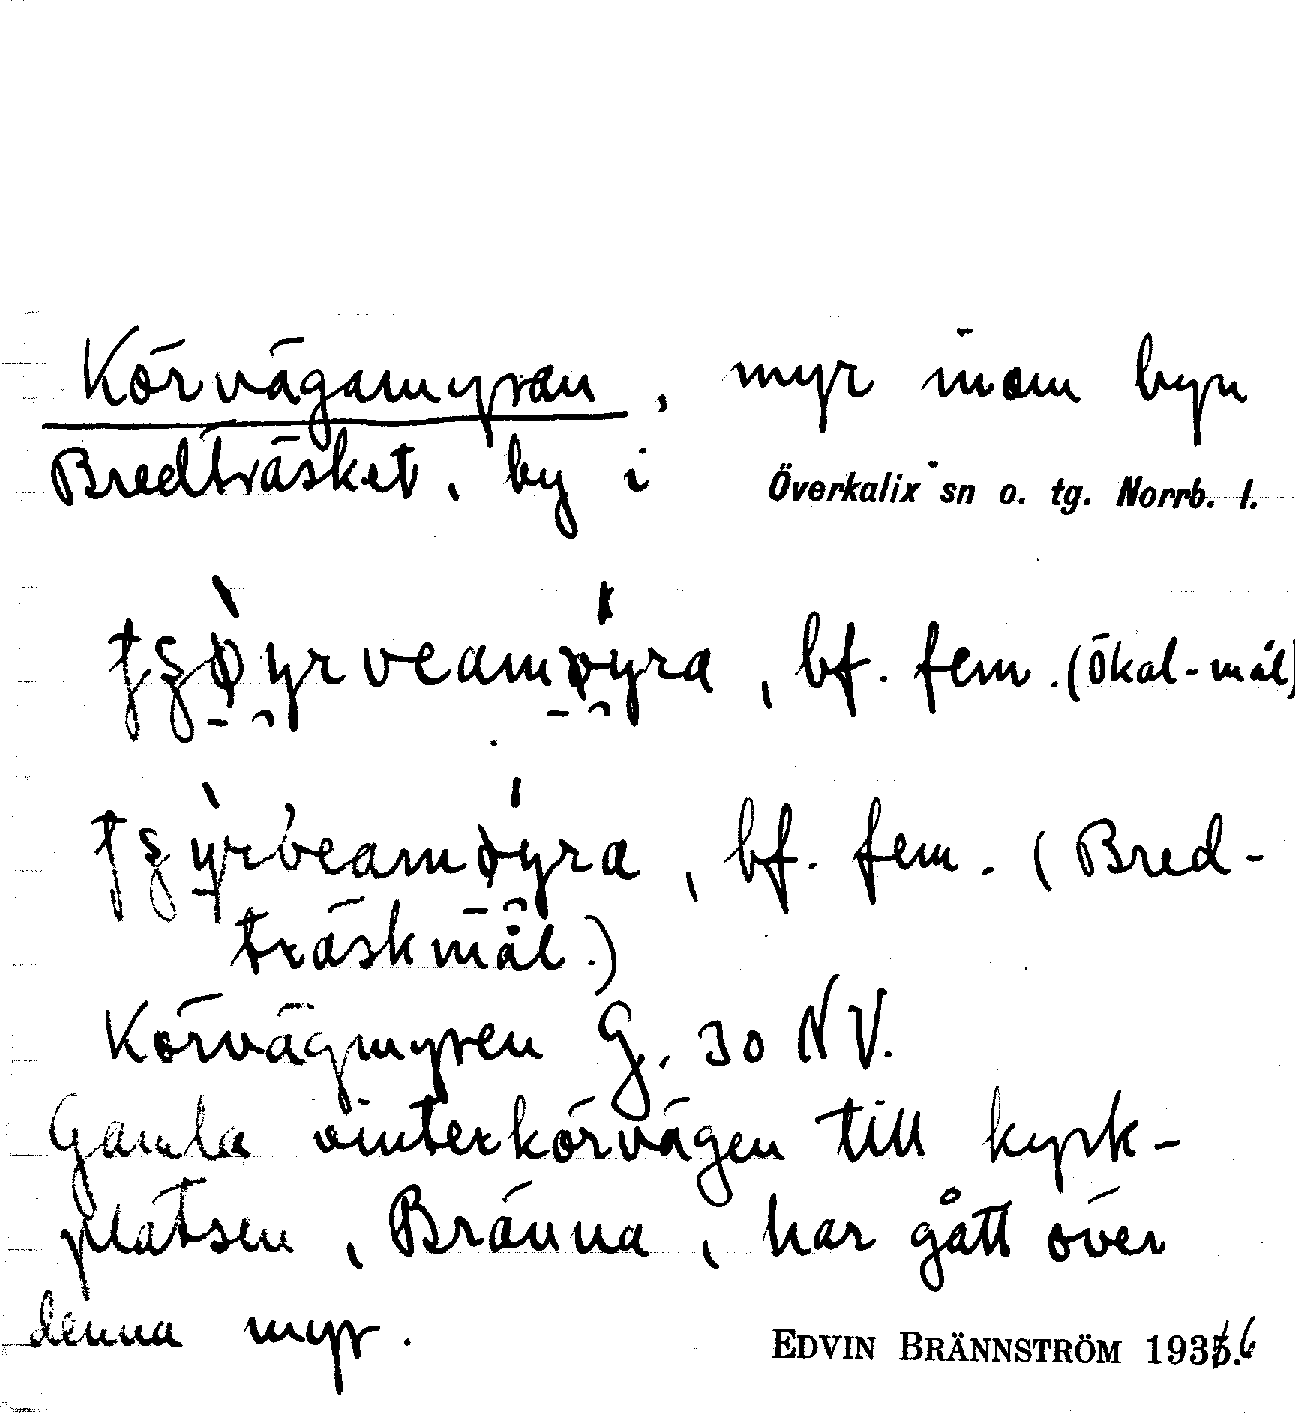 Körvägamyran, myr inom byn
Bredträsket, by i Överkalix sn o. tg. Norrb. l.
bf. fem. (Ökal-mål)
bf. fem. (Bred-
träskmål.)
Körvägmyren G. 30 NV.
Gamla vinterkörvägen till kyrk-
platsen, Bränna, har gått över
denna myr.
EDVIN BRÄNNSTRÖM 1936